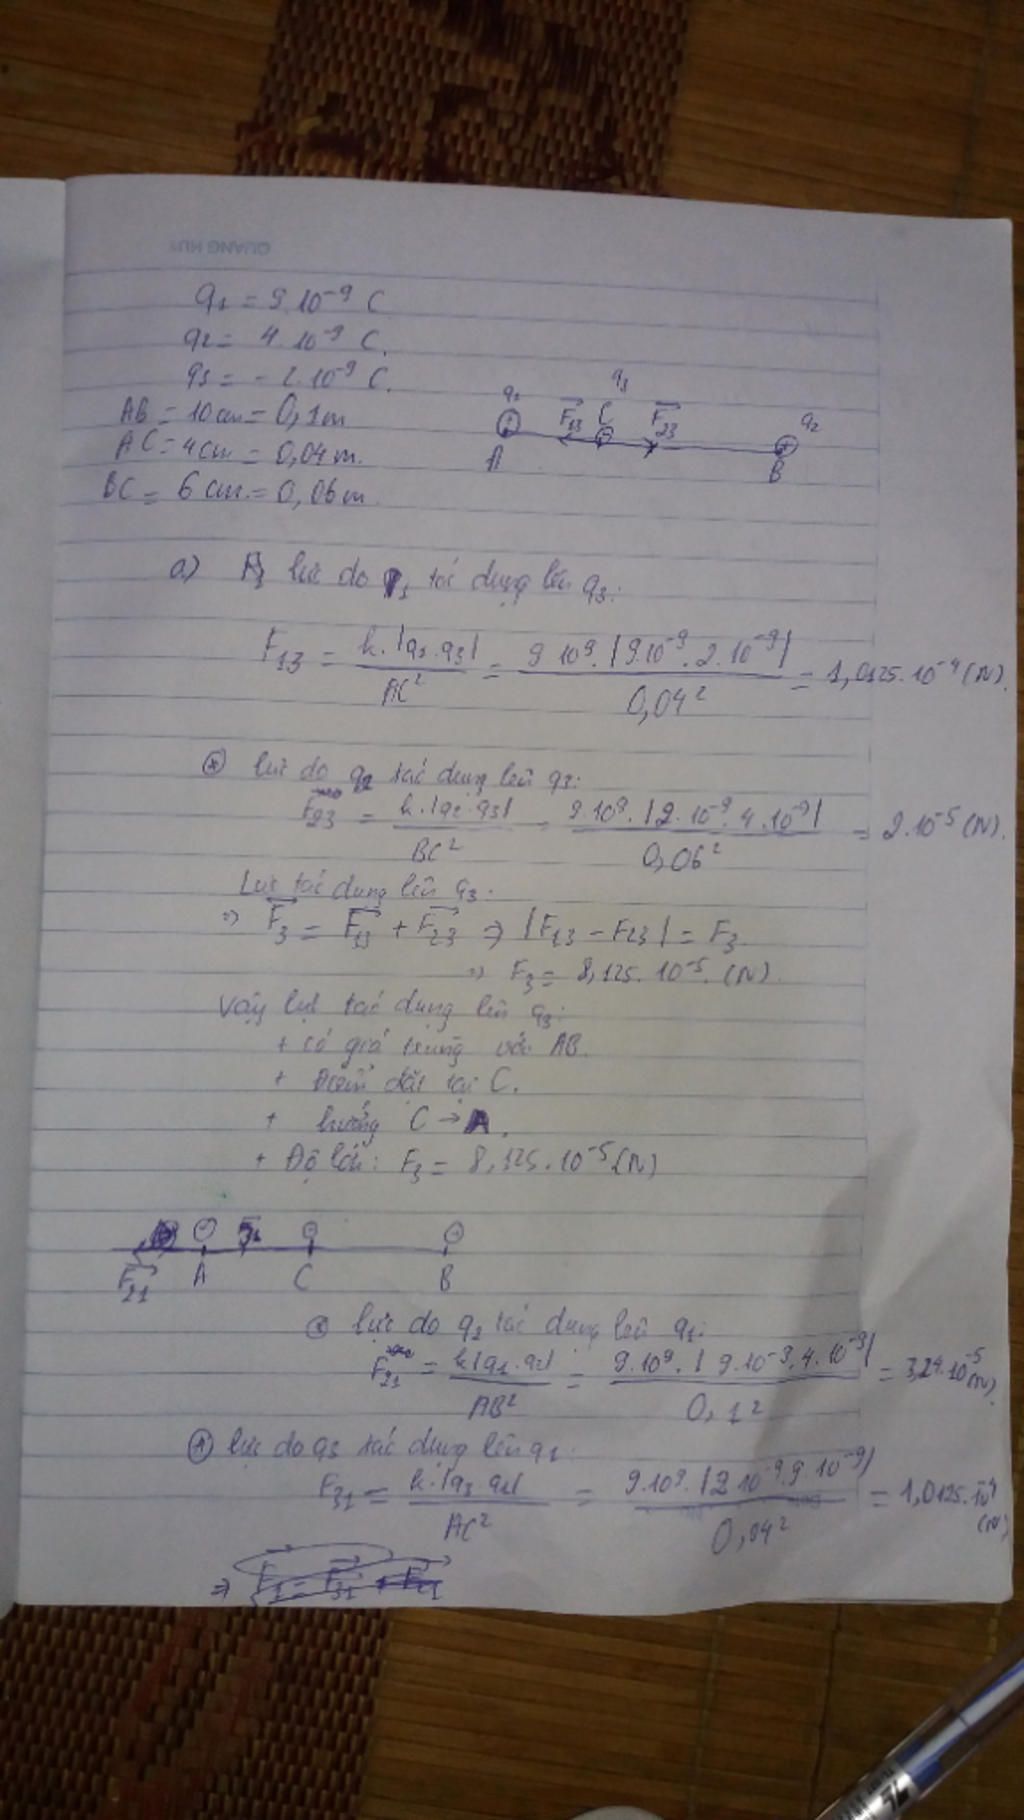 QUANG HUY
q1 = 9.10⁻⁹ C
q2 = 4.10⁻⁹ C.
q3 = - 2.10⁻⁹ C.
AB = 10cm = 0,1m
AC = 4cm = 0,04m.
BC = 6cm = 0,06m.
q1 F13 C q3 F23 q2
A B
a) lực do q1 tác dụng lên q3:
F13 = k.|q1.q3| / AC² = 9.10⁹.|9.10⁻⁹.2.10⁻⁹| / 0,04² = 1,0125.10⁻⁴ (N).
⊛ lực do q2 tác dụng lên q3:
F23 = k.|q2.q3| / BC² = 9.10⁹.|2.10⁻⁹.4.10⁻⁹| / 0,06² = 2.10⁻⁵ (N).
Lực tác dụng lên q3:
=> F3 = F13 + F23 => |F13 - F23| = F3
=> F3 = 8,125.10⁻⁵ (N).
Vậy lực tác dụng lên q3:
+ có giá trùng với AB.
+ Điểm đặt tại C.
+ hướng C → A.
+ Độ lớn: F3 = 8,125.10⁻⁵ (N)
F21 A C B
⊛ lực do q2 tác dụng lên q1:
F21 = k|q1.q2| / AB² = 9.10⁹.|9.10⁻⁹.4.10⁻⁹| / 0,1² = 3,24.10⁻⁵ (N)
⊛ lực do q3 tác dụng lên q1:
F31 = k.|q3.q1| / AC² = 9.10⁹.|2.10⁻⁹.9.10⁻⁹| / 0,04² = 1,0125.10⁻⁴ (N)
=> F1 = F31 + F21